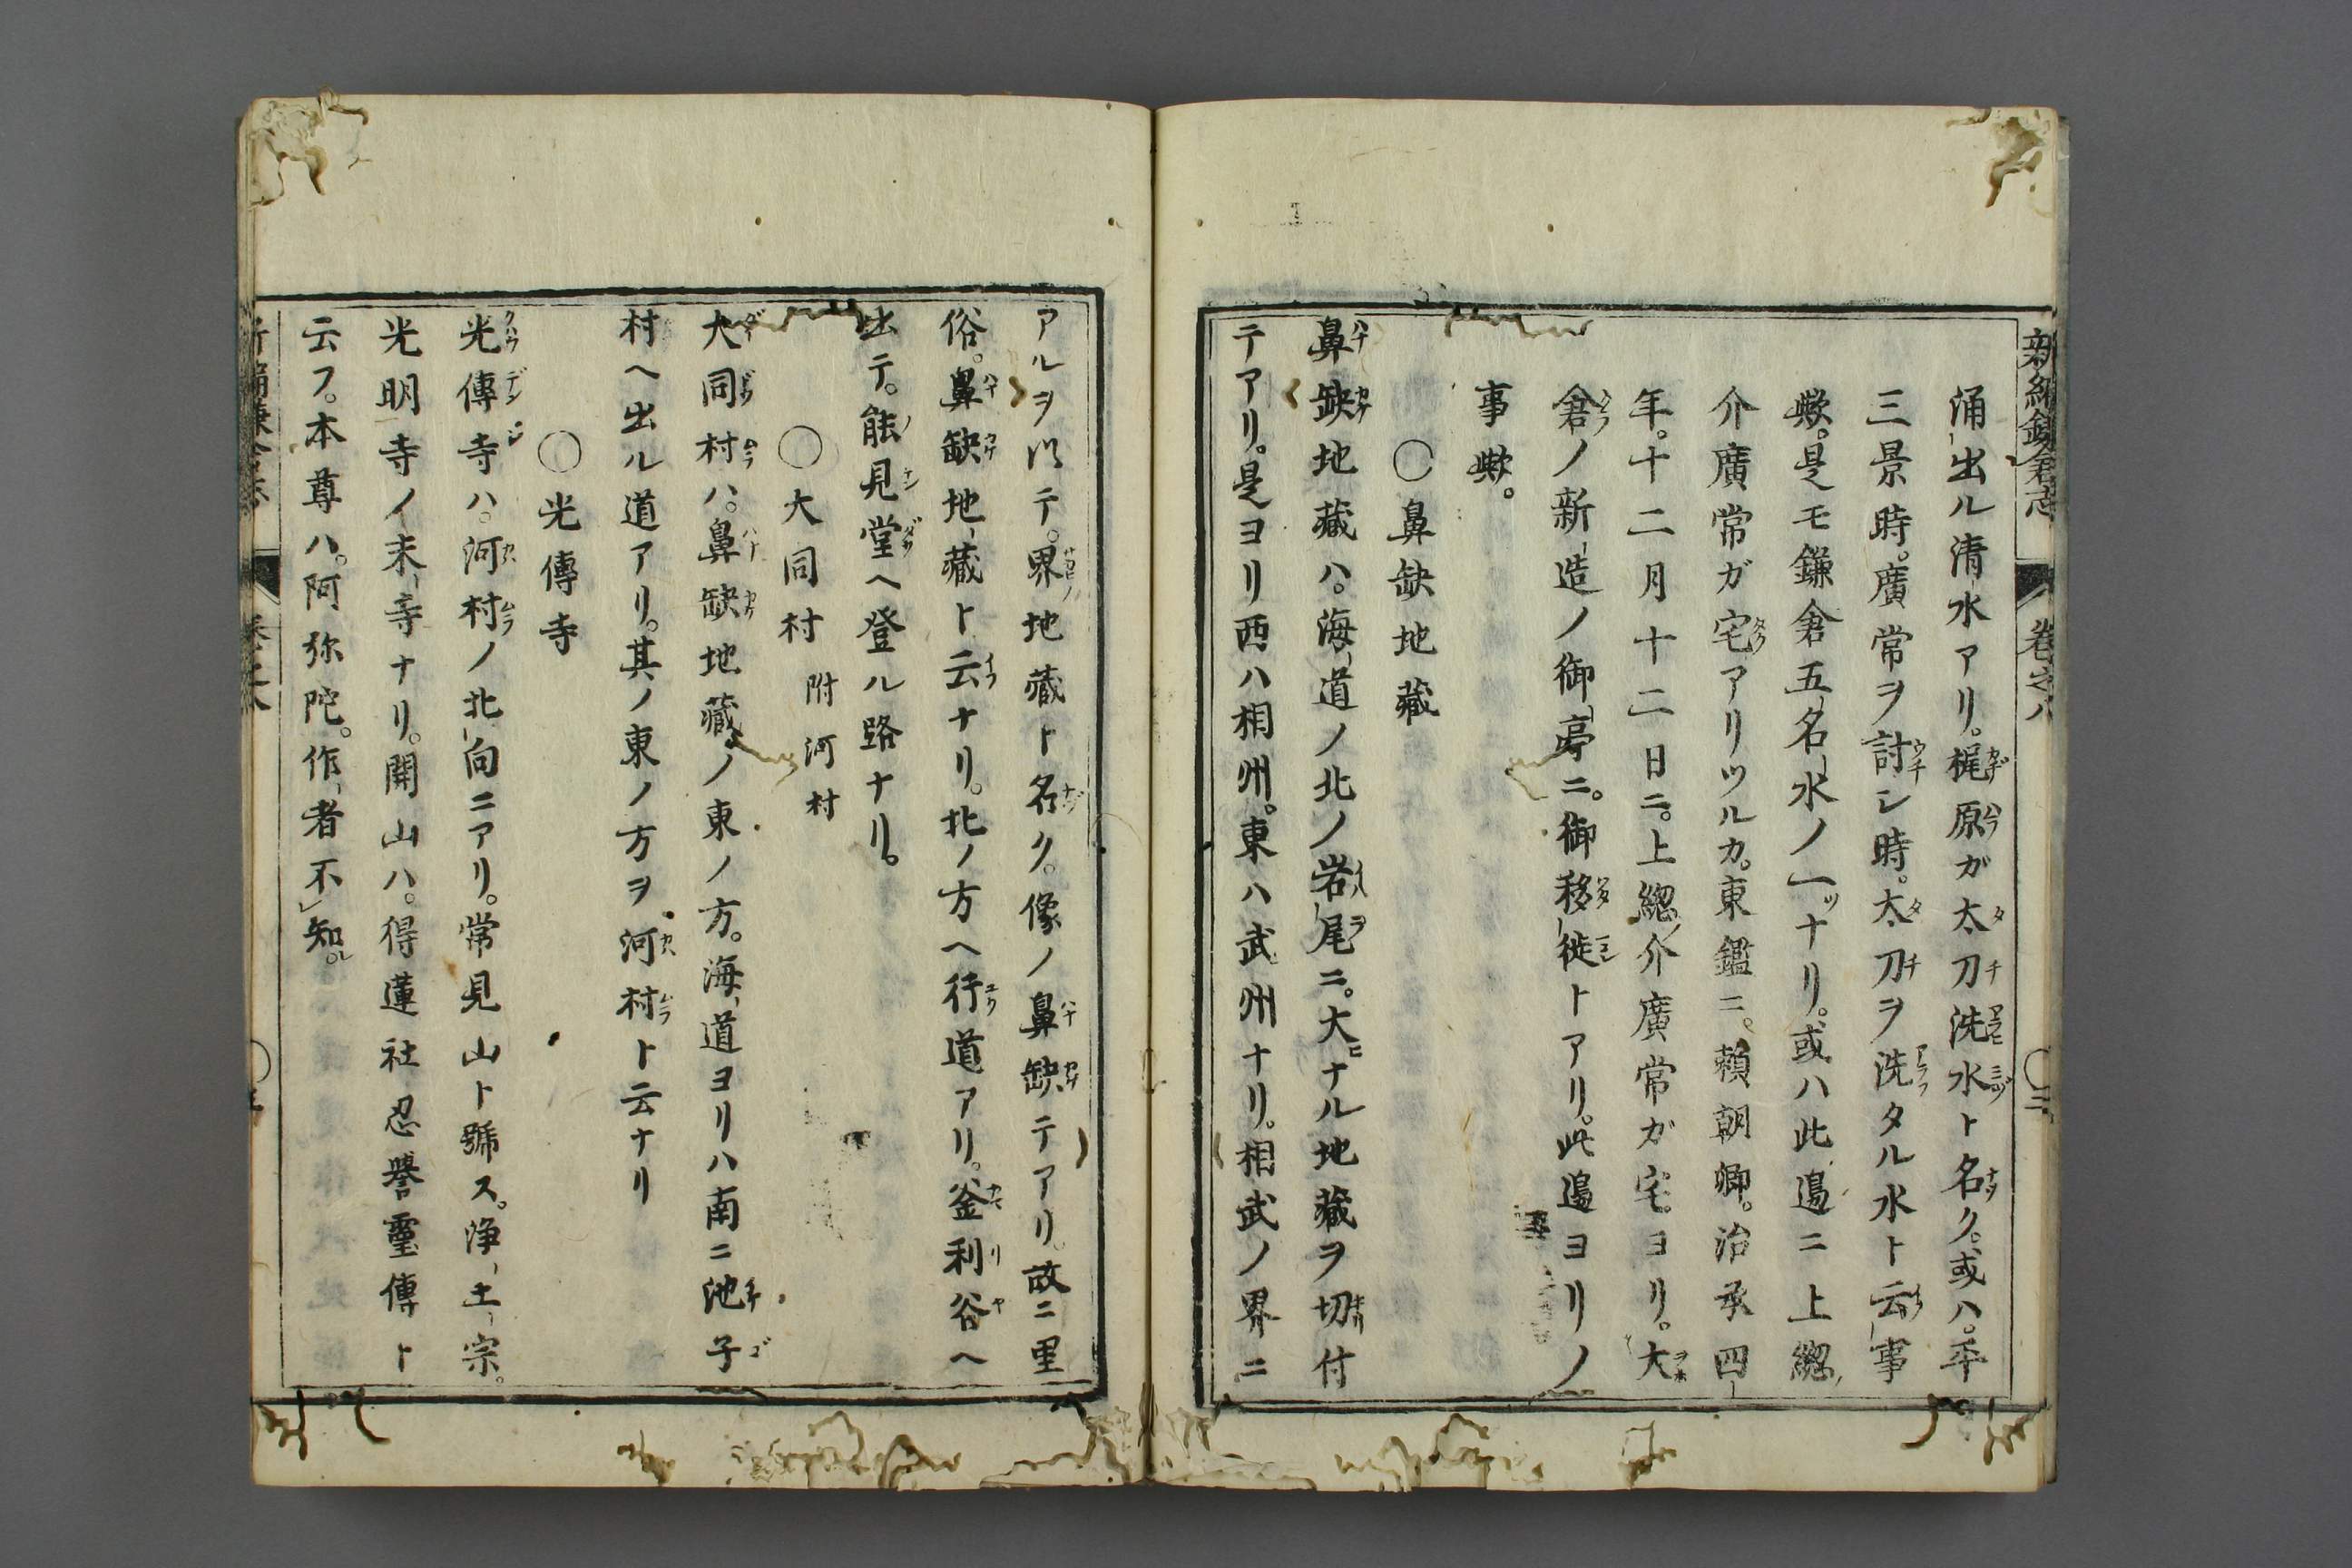 新編鎌倉志 卷之八 〇二
涌出ル清水アリ。梶原ガ太刀洗水ト名ク。或ハ。平
三景時。廣常ヲ討シ時。太刀ヲ洗タル水ト云事
歟。是モ鎌倉五名水ノ一ツナリ。或ハ此邉ニ上緫
介廣常ガ宅アリツルカ。東鑑ニ。頼朝卿。治承四
年。十二月十二日ニ。上緫介廣常ガ宅ヨリ。大
倉ノ新造ノ御亭ニ。御移徙トアリ。此邉ヨリノ
事歟。
〇鼻缺地藏
鼻缺地藏ハ。海道ノ北ノ岩尾ニ。大ナル地藏ヲ切付
テアリ。是ヨリ西ハ相州。東ハ武州ナリ。相武ノ界ニ
アルヲ以テ。界地藏ト名ク。像ノ鼻缺テアリ。故ニ里
俗。鼻缺地藏ト云ナリ。北ノ方ヘ行道アリ。釜利谷ヘ
出テ。能見堂ヘ登ル路ナリ。
〇大同村 附河村
大同村ハ。鼻缺地藏ノ東ノ方。海道ヨリハ南ニ池子
村ヘ出ル道アリ。其ノ東ノ方ヲ河村ト云ナリ
〇光傳寺
光傳寺ハ。河村ノ北向ニアリ。常見山ト號ス。浄土宗。
光明寺ノ末寺ナリ。開山ハ。得蓮社忍譽靈傳ト
云フ。本尊ハ。阿弥陀。作者不知。